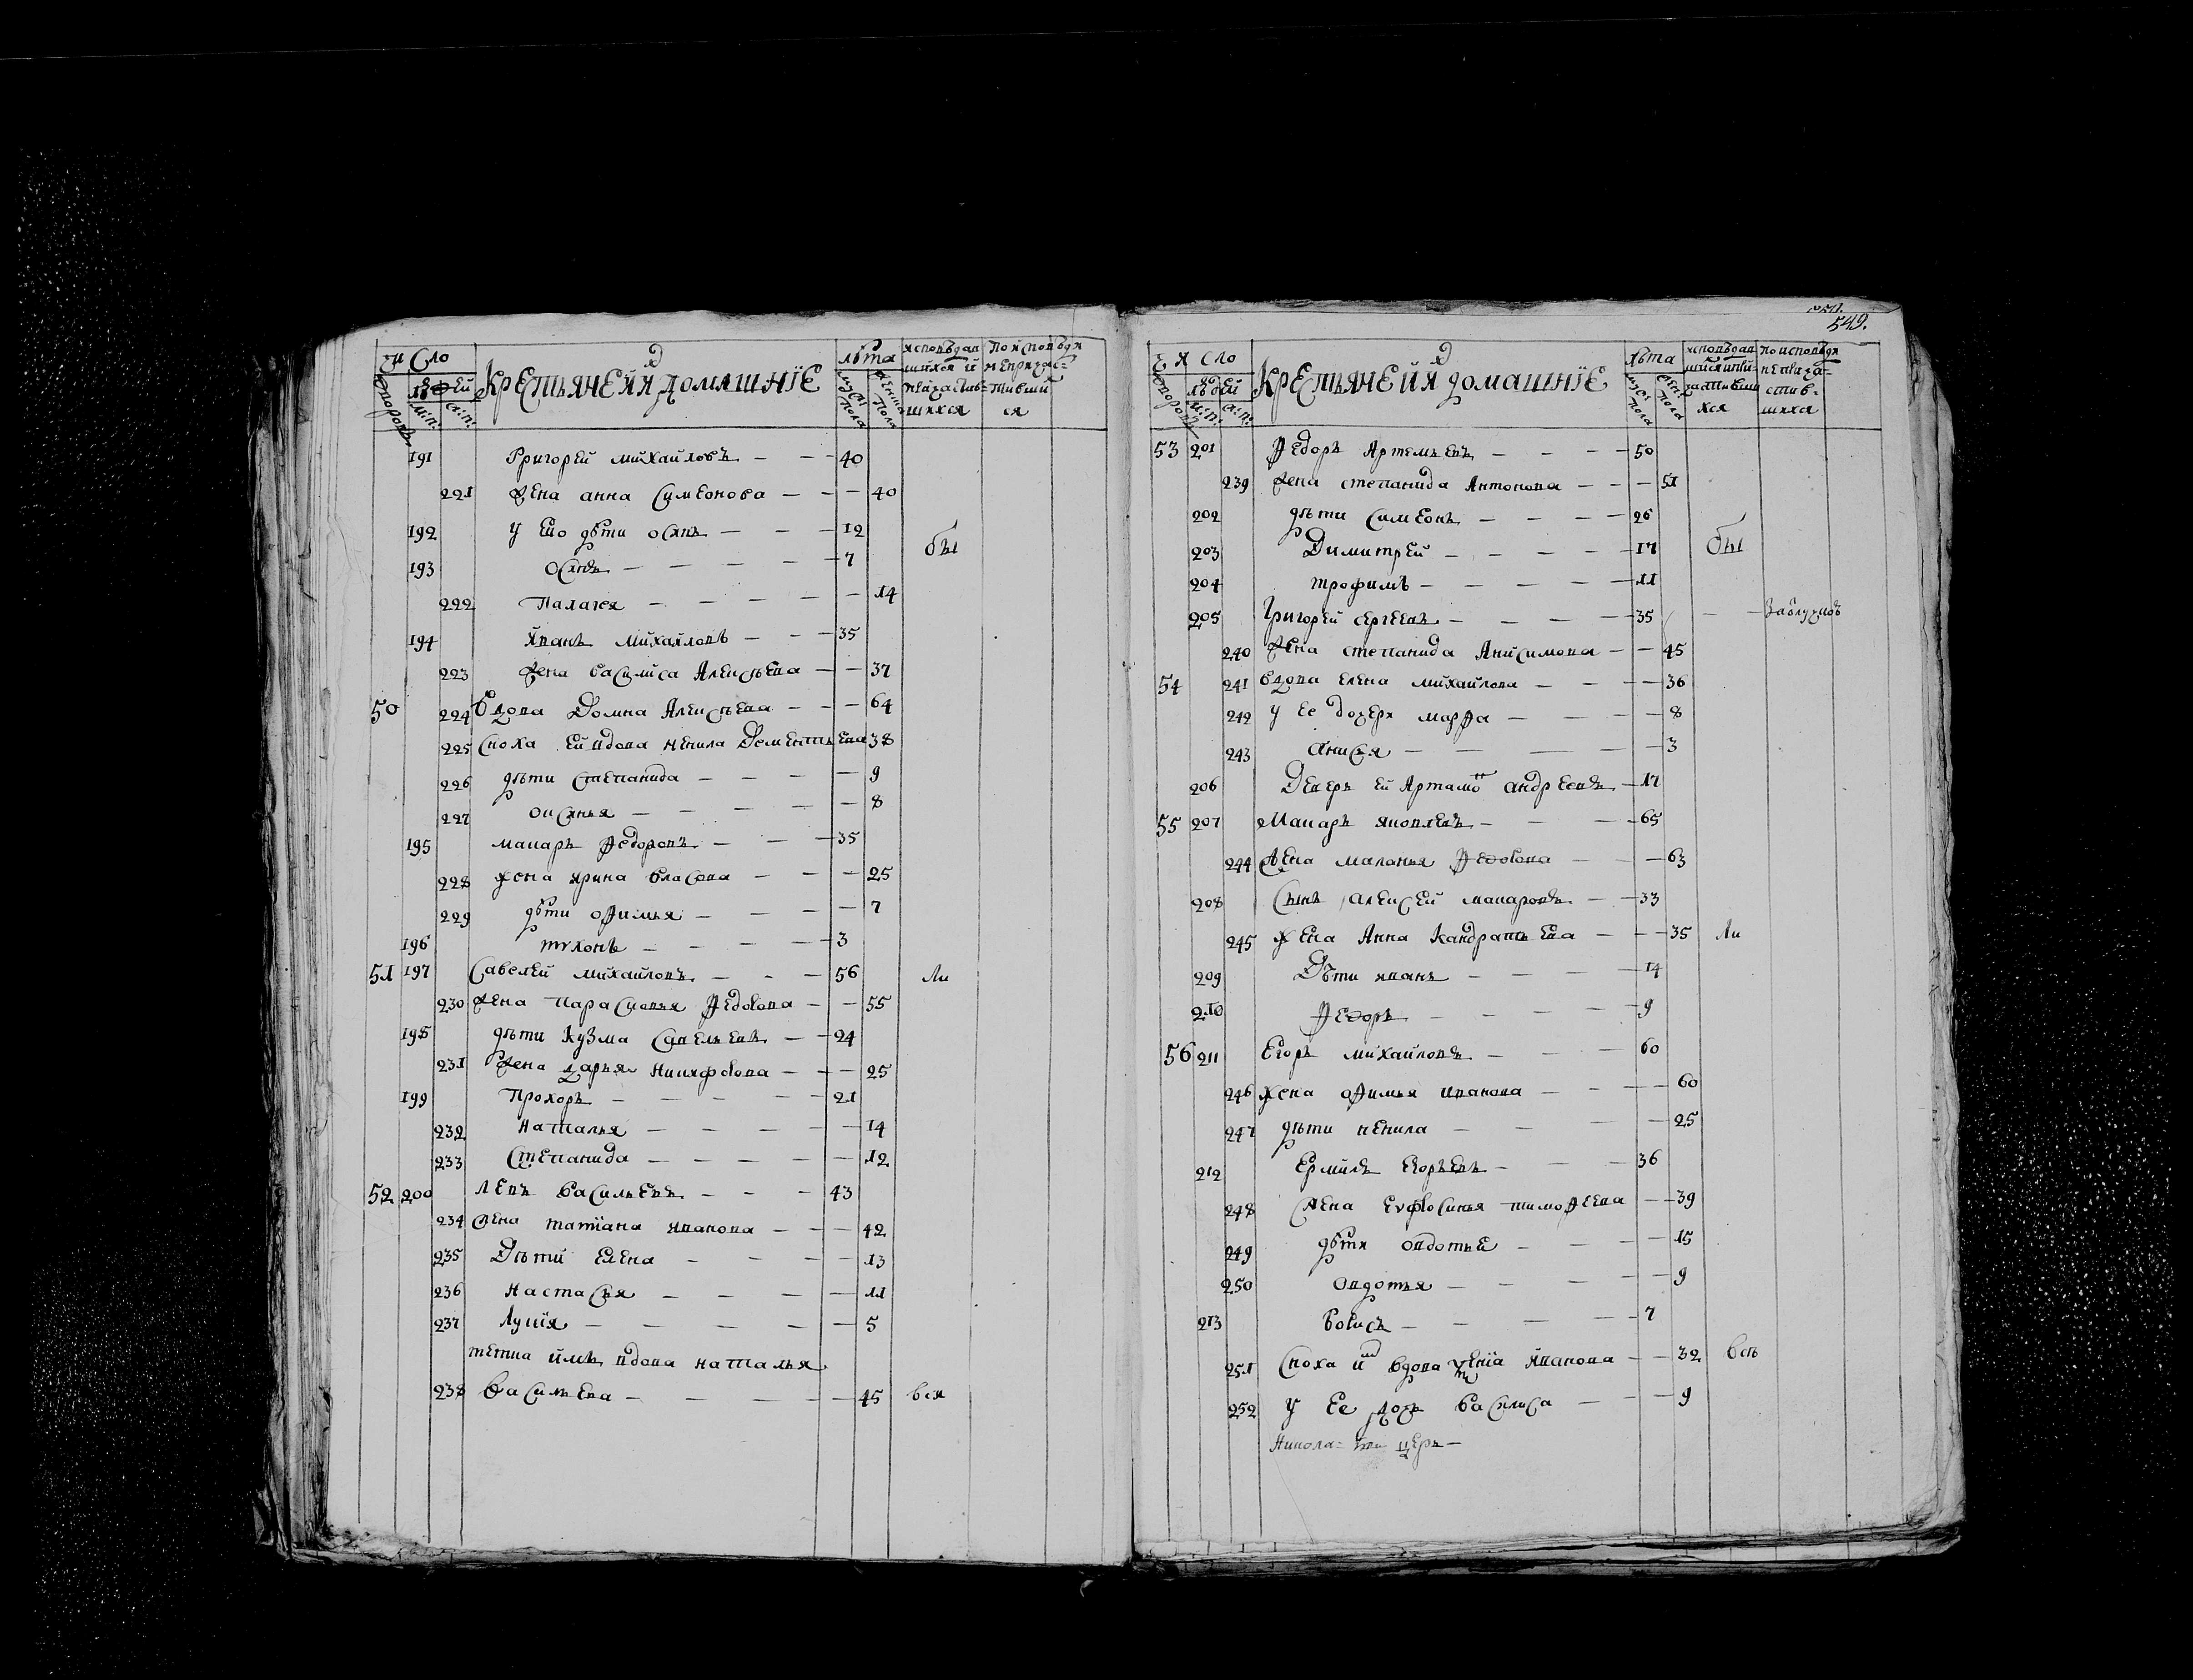 число
людей
м: п: ж: п:
дворовъ
Крестьяне и их домашніе
лѣта
мужск пола
женска пола
исповѣдав
шихся и
причастив-
шихся
по исповѣди
непричас-
тивши
ся
191 Григорей михайловъ — — — 40
221 жена анна Симеонова — — — 40
192 у его дѣти осипъ — — — 12
бы
193 осипъ — — — — — 7
222 Палагея — — — — — 14
194 Иванъ михайловъ — — — 35
223 жена василиса Алексѣева — — 37
50 224 Вдова Домна Алексѣева — — — 64
225 сноха ей вдова ненила Дементьева 38
226 дѣти степанида — — — — 9
227 оксинья — — — — 8
195 макаръ федоровъ — — — 35
228 жена ирина власова — — — 25
229 дѣти офимья — — — — 7
196 тихонъ — — — — 3
51 197 Савелей михайловъ — — — 56 ли
230 жена парасковья федорова — — 55
198 дѣти кузма савельевъ — — 24
231 жена дарья никифорова — — — 25
199 прохоръ — — — — — 21
232 наталья — — — — — 14
233 степанида — — — — — 12
52 200 левъ васильевъ — — — 43
234 жена татіана иванова — — — 42
235 Дѣти елена — — — — 13
236 настасья — — — — 11
237 лукія — — — — — 5
тетка имъ вдова наталья
238 васильева — — — — — 45 вси
549.
число
людей
м: п: ж: п:
дворовъ
Крестьяне и их домашніе
лѣта
мужс пола
женс пола
исповѣдав
шихся и при-
частивши
хся
по исповѣди
неприча-
стив-
шихся
53 201 федоръ Артемьевъ — — — — 50
239 жена степанида Антонова — — — 51
202 дѣти симеонъ — — — — 26
203 Димитрей — — — — — 17 бы
204 трофимъ — — — — — 11
205 Григорей сергеевъ — — — — 35 — —
240 жена степанида Анисимова — — 45
54 241 вдова елена михайлова — — — — 36
242 у ее дочери марфа — — — — 8
243 анисья — — — — 3
206 Деверь ей Артамонъ андреевъ — 17
55 207 Макаръ яковлевъ — — — 65
244 жена маланья федорова — — — 63
208 сынъ алексей макаровъ — — 33
245 жена Анна кандратьева — — — 35 ли
209 Дѣти иванъ — — — — 14
210 федоръ — — — — 9
56 211 егоръ михайловъ — — — 60
246 жена офимья иванова — — — — 60
247 дѣти ненила — — — — 25
212 ермилъ егорьевъ — — — 36
248 жена еѵфросинья тимофеева — — 39
249 дѣти овдотьи — — — — 15
250 овдотья — — — — 9
213 борисъ — — — — 7
251 сноха им вдова іванова — — 32 всѣ
252 у ее дочь василиса — — — 9